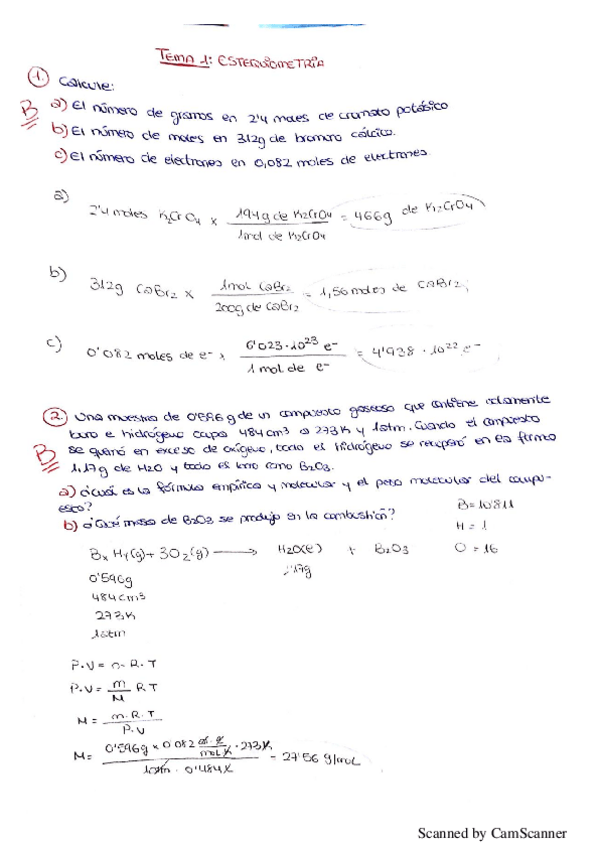 TEMA 1: ESTEQUIOMETRÍA
1. Calcule:
B
a) El número de gramos en 2'4 moles de cromato potásico
b) El número de moles en 312g de bromuro cálcico.
c) El número de electrones en 0,082 moles de electrones
a) 2'4 moles K2CrO4 x 194g de K2CrO4 / 1mol de K2CrO4 = 466g de K2CrO4
b) 312g CaBr2 x 1mol CaBr2 / 200g de CaBr2 = 1,56 moles de CaBr2
c) 0'082 moles de e- x 6'023·10^23 e- / 1 mol de e- = 4'938 · 10^22 e-
2. Una muestra de 0'596g de un compuesto gaseoso que contiene solamente
boro e hidrógeno ocupa 484cm3 a 273K y 1atm. Cuando el compuesto
B
se quemó en exceso de oxígeno, todo el hidrógeno se recuperó en la forma
1,17g de H2O y todo el boro como B2O3.
a) ¿Cuál es la fórmula empírica y molecular y el peso molecular del compu-
esto?
b) ¿Qué masa de B2O3 se produjo en la combustión?
B=10'811
H = 1
O = 16
BxHy(g) + 3O2(g) → H2O(l) + B2O3
0'596g
484cm3
273K
1atm
1'17g
P·V = n·R·T
P·V = m/M RT
M = m·R·T / P·V
M= 0'596g x 0'082 atm·l/mol·K · 273K / 1atm · 0'484l = 27'56 g/mol
Scanned by CamScanner